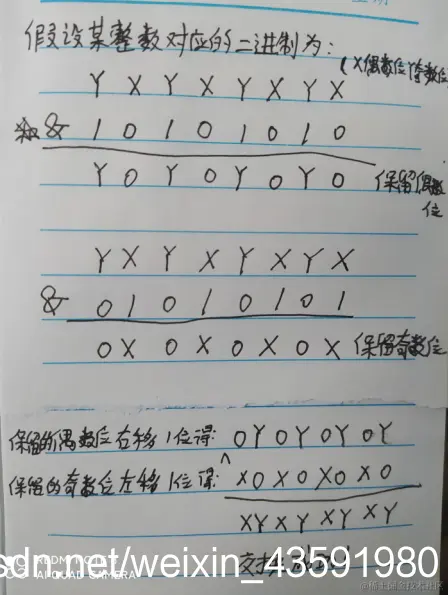 假设某整数对应的二进制为:
(X偶数位
Y X Y X Y X Y X
& 1 0 1 0 1 0 1 0
Y 0 Y 0 Y 0 Y 0 保留偶数
位
Y X Y X Y X Y X
& 0 1 0 1 0 1 0 1
0 X 0 X 0 X 0 X 保留奇数位
保留的偶数位右移1位得: 0Y 0Y 0Y 0Y
^
保留的奇数位左移1位得: X0 X0 X0 X0
XY XY XY XY
交换
REDMI
AI QUAD CAMERA
sdn.net/weixin_43591980
@稀土掘金技术社区